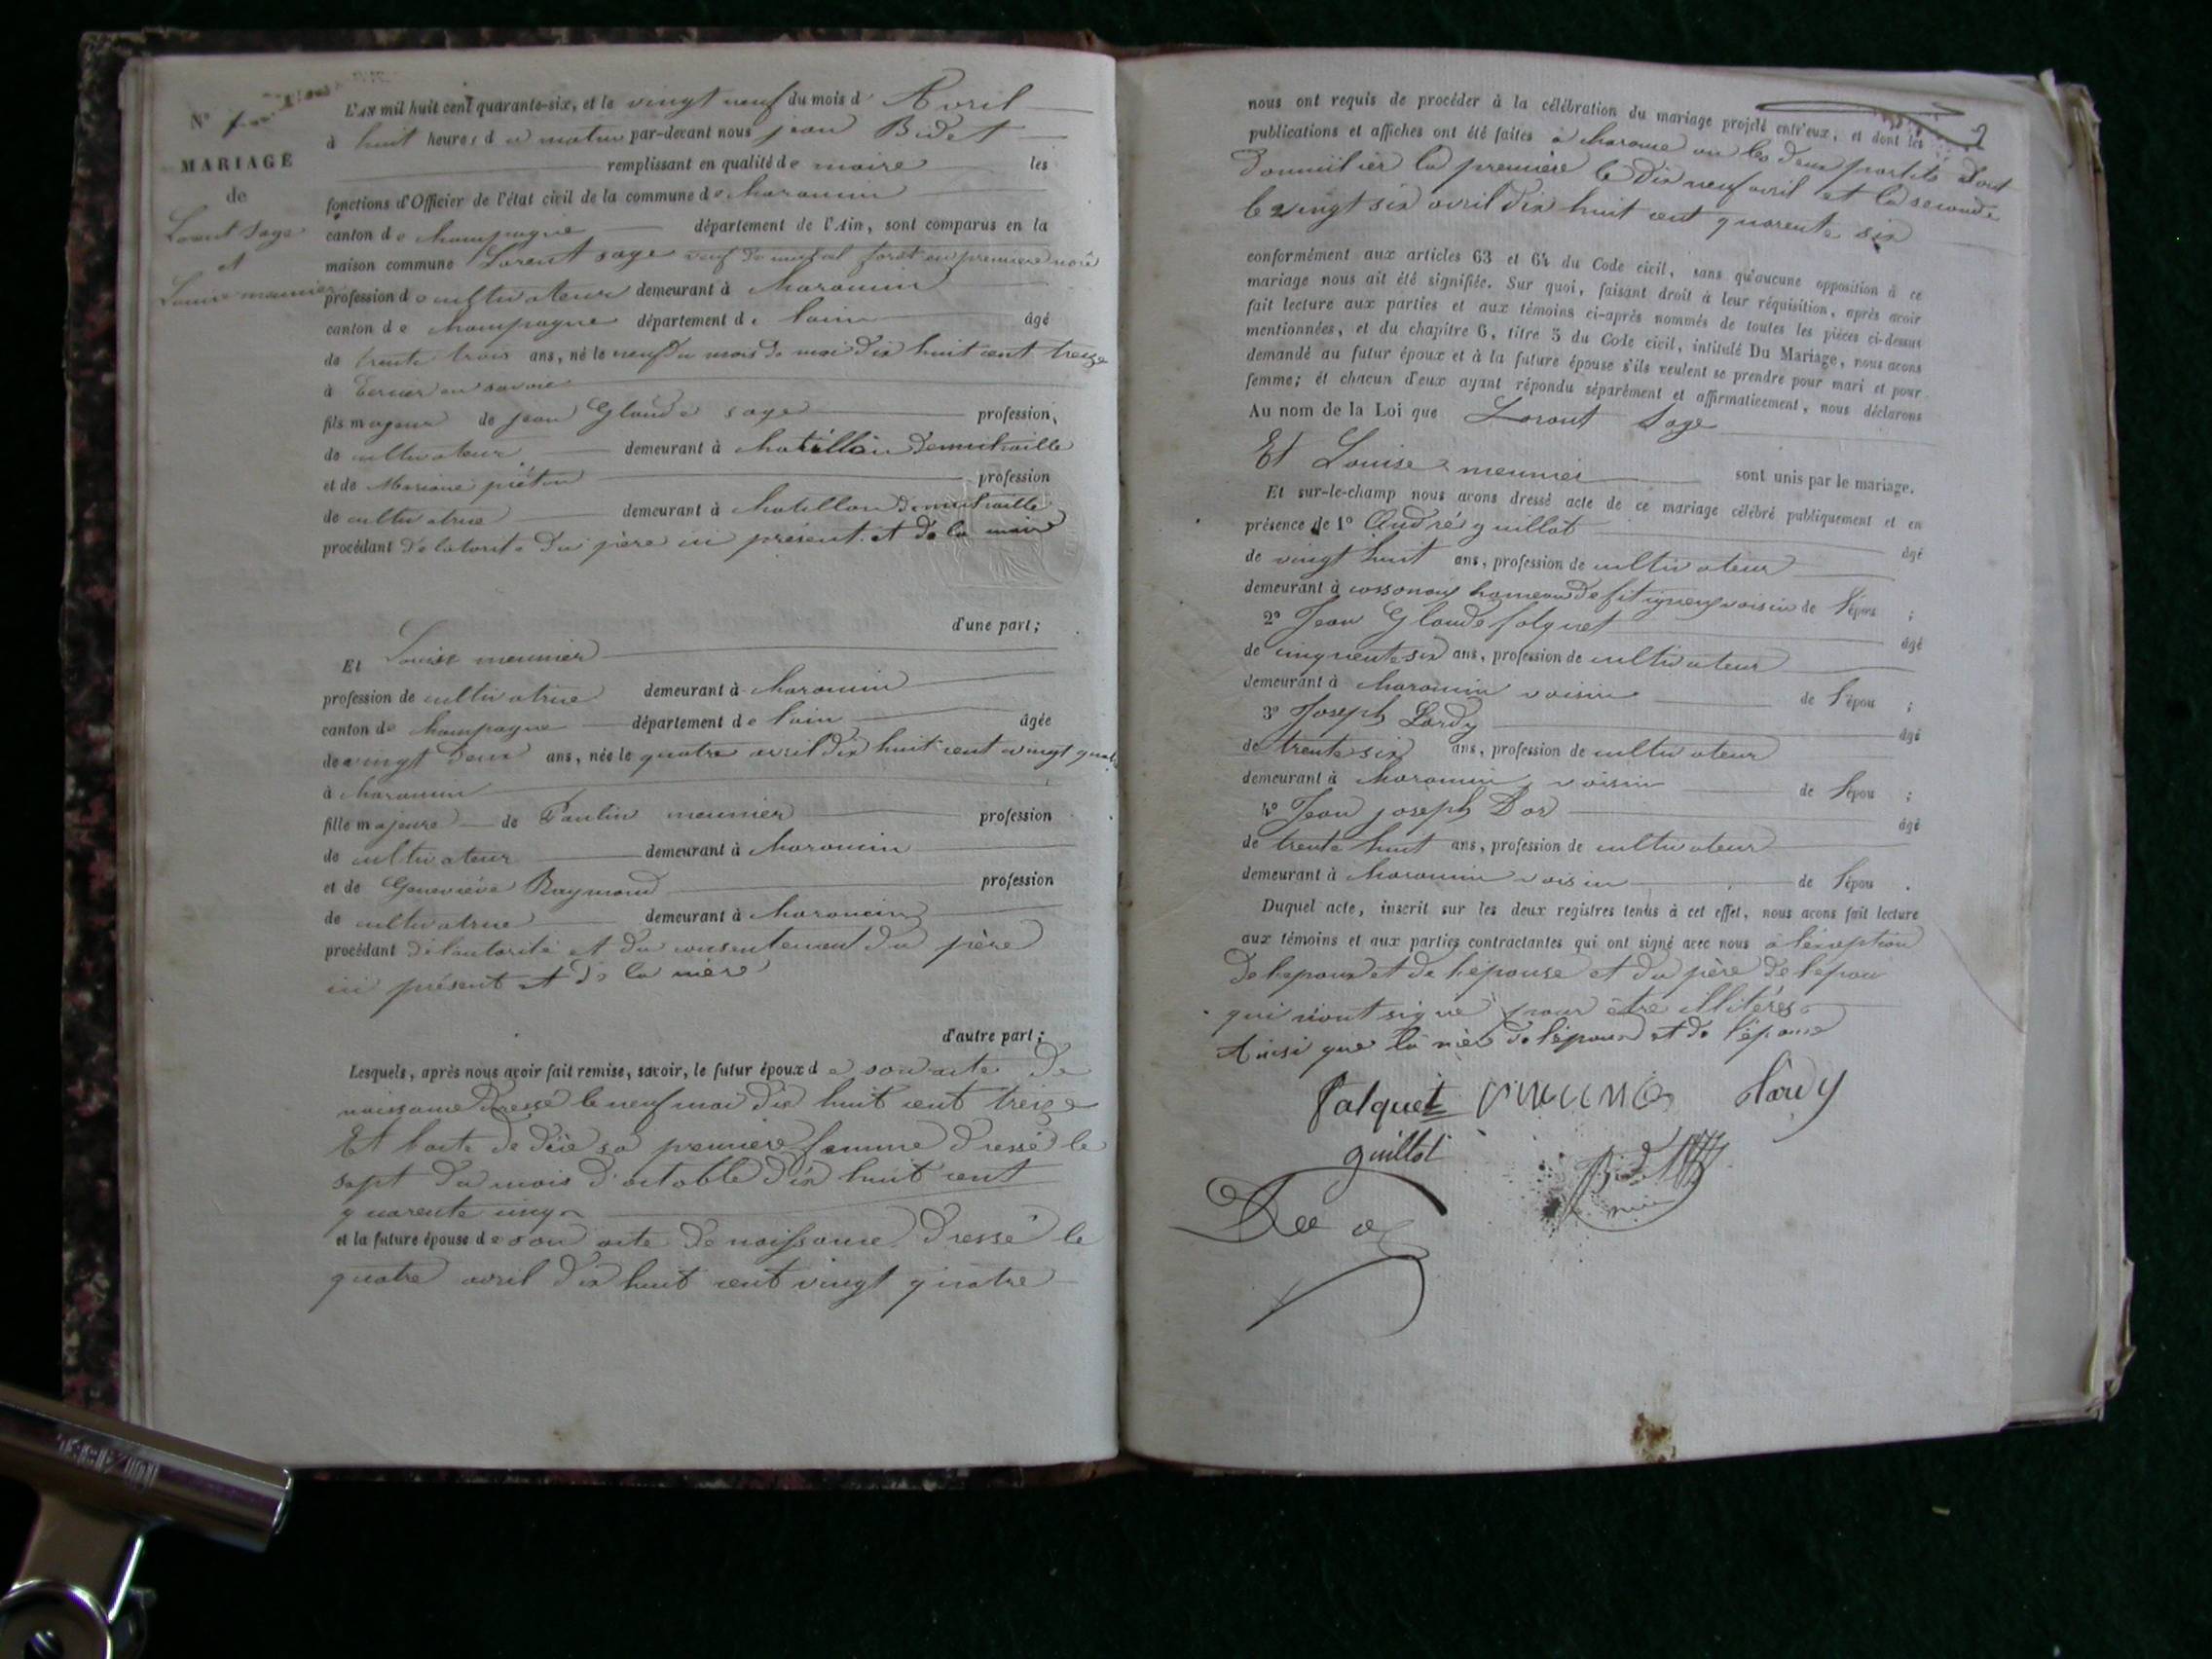 N° 1
MARIAGE
de
Lorent Sage
et
Louise meunier
L'AN mil huit cent quarante-six, et le vingt neuf du mois d' Avril
à huit heures du matin par-devant nous jean Bidet
remplissant en qualité de maire les
fonctions d'Officier de l'état civil de la commune de
canton de champagne département de l'Ain, sont comparus en la
maison commune Lorent sage veuf de forêt en premiere
profession de cultivateur demeurant à
canton de champagne département de lain âgé
de trente trois ans, né le neuf du mois de mai dix huit cent treize
à en savoie
fils majeur de jean Glaude sage profession
de cultivateur demeurant à chatillon demichaille
et de Mariane piéton profession
de cultivatrice demeurant à chatillon demichaille
procédant de latorite du père ici présent et de la mère
d'une part;
Et Louise meunier
profession de cultivatrice demeurant à
canton de champagne département de lain âgée
de vingt deux ans, née le quatre avril dix huit cent vingt quatre
à
fille majeure de Paulin meunier profession
de cultivateur demeurant à
et de Geneviève Raymond profession
de cultivatrice demeurant à
procédant de lautorité et du consentement du père
ici présent et de la mère
d'autre part;
Lesquels, après nous avoir fait remise, savoir, le futur époux de son acte de
naissance dressé le neuf mai dix huit cent treize
Et lacte de déce sa premiere femme dressé le
sept du mois d'octoble dix huit cent
quarente cinq
et la future épouse de son acte de naissance dressé le
quatre avril dix huit cent vingt quatre
2
nous ont requis de procéder à la célébration du mariage projeté entr'eux, et dont les
publications et affiches ont été faites à ou les deux partits sont
Domicilier la première le dix neuf avril et la seconde
le vingt six avril dix huit cent quarente six
conformément aux articles 63 et 64 du Code civil, sans qu'aucune opposition à ce
mariage nous ait été signifiée. Sur quoi, faisant droit à leur réquisition, après avoir
fait lecture aux parties et aux témoins ci-après nommés de toutes les pièces ci-dessus
mentionnées, et du chapitre 6, titre 5 du Code civil, intitulé Du Mariage, nous avons
demandé au futur époux et à la future épouse s'ils veulent se prendre pour mari et pour
femme; et chacun d'eux ayant répondu séparément et affirmativement, nous déclarons
Au nom de la Loi que Lorent Sage
Et Louise meunier sont unis par le mariage.
Et sur-le-champ nous avons dressé acte de ce mariage célébré publiquement et en
présence de 1° André guillot âgé
de vingt huit ans, profession de cultivateur
demeurant à hameau de fitignieu voisin de l'épou ;
2° Jean Glaude falquet âgé
de cinquente six ans, profession de cultivateur
demeurant à voisin de l'épou ;
3° Joseph Lardy âgé
de trente six ans, profession de cultivateur
demeurant à voisin de l'épou ;
4° Jean joseph âgé
de trente huit ans, profession de cultivateur
demeurant à voisin de l'épou .
Duquel acte, inscrit sur les deux registres tenus à cet effet, nous avons fait lecture
aux témoins et aux parties contractantes qui ont signé avec nous à léxception
de lepoux et de l'épouse et du père de lepou
qui n'ont signé pour être illitérés
Ainsi que la mère de l'époux et de l'épouse
falquet lardy
guillot